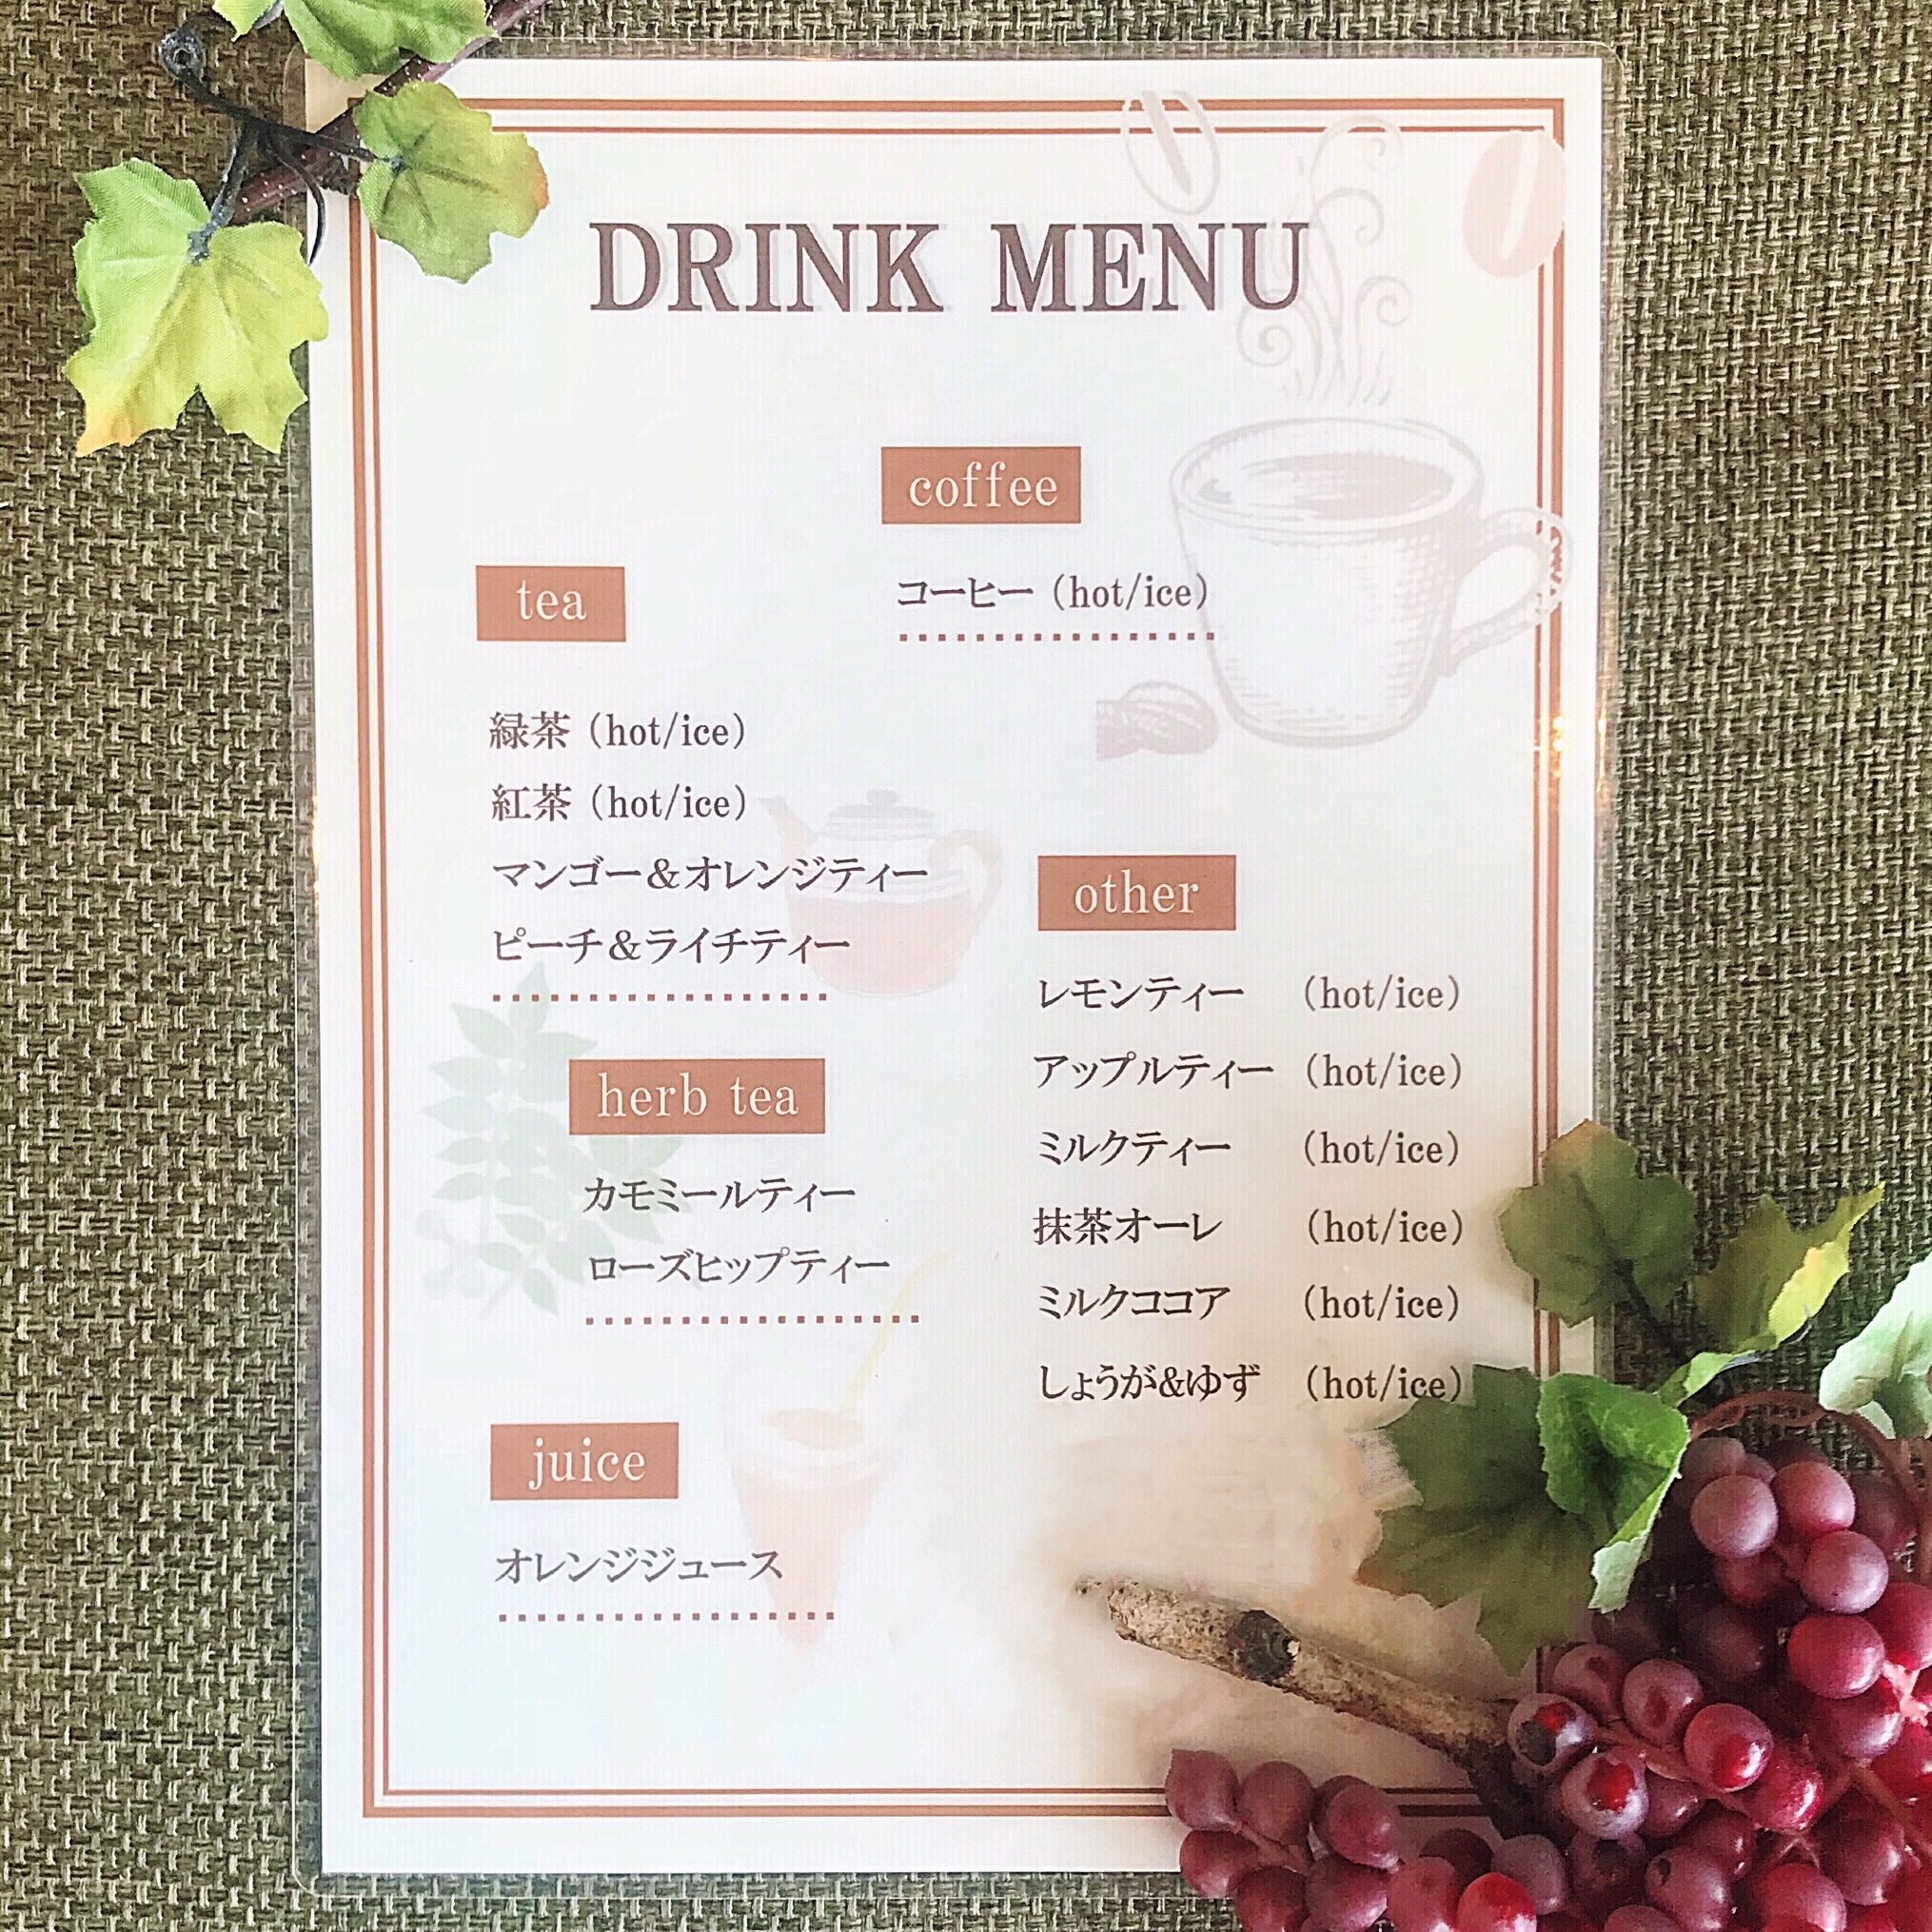 DRINK MENU
coffee
コーヒー（hot/ice）
tea
緑茶（hot/ice）
紅茶（hot/ice）
マンゴー＆オレンジティー
ピーチ＆ライチティー
herb tea
カモミールティー
ローズヒップティー
juice
オレンジジュース
other
レモンティー （hot/ice）
アップルティー （hot/ice）
ミルクティー （hot/ice）
抹茶オーレ （hot/ice）
ミルクココア （hot/ice）
しょうが&ゆず （hot/ice）